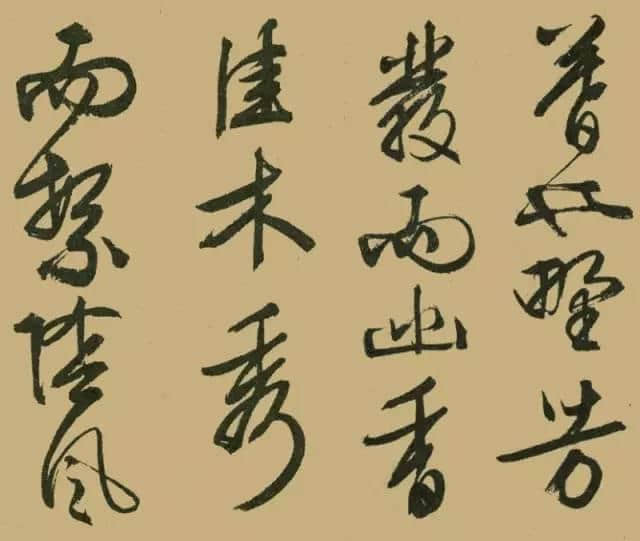 暮也野芳
發而幽香
佳木秀
而繁陰風